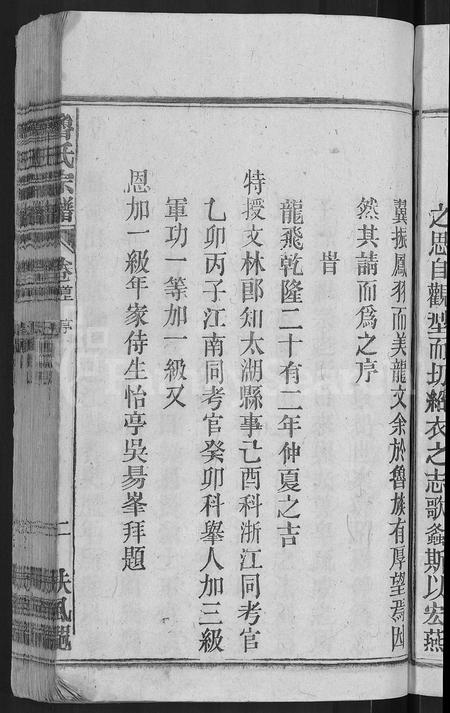 之思自觀型而切緇衣之志歌螽斯以宏燕
翼振鳳羽而美龍文余於魯族有厚望焉因
然其請而爲之序
旹
龍飛乾隆二十有二年仲夏之吉
特授文林郎知太湖縣事己酉科浙江同考官
乙卯丙子江南同考官癸卯科舉人加三級
軍功一等加一級又
恩加一級年家侍生怡亭吳昜峯拜題
魯氏宗譜 卷首 序 二 扶風堂